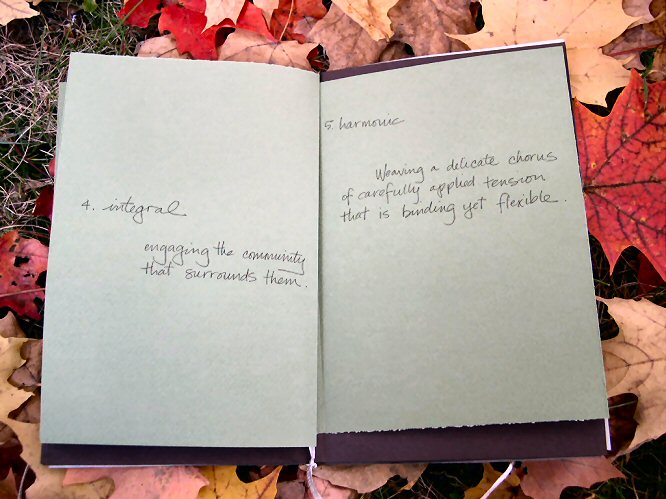 4. integral
engaging the community
that surrounds them.
5. harmonic
Weaving a delicate chorus
of carefully applied tension
that is binding yet flexible.